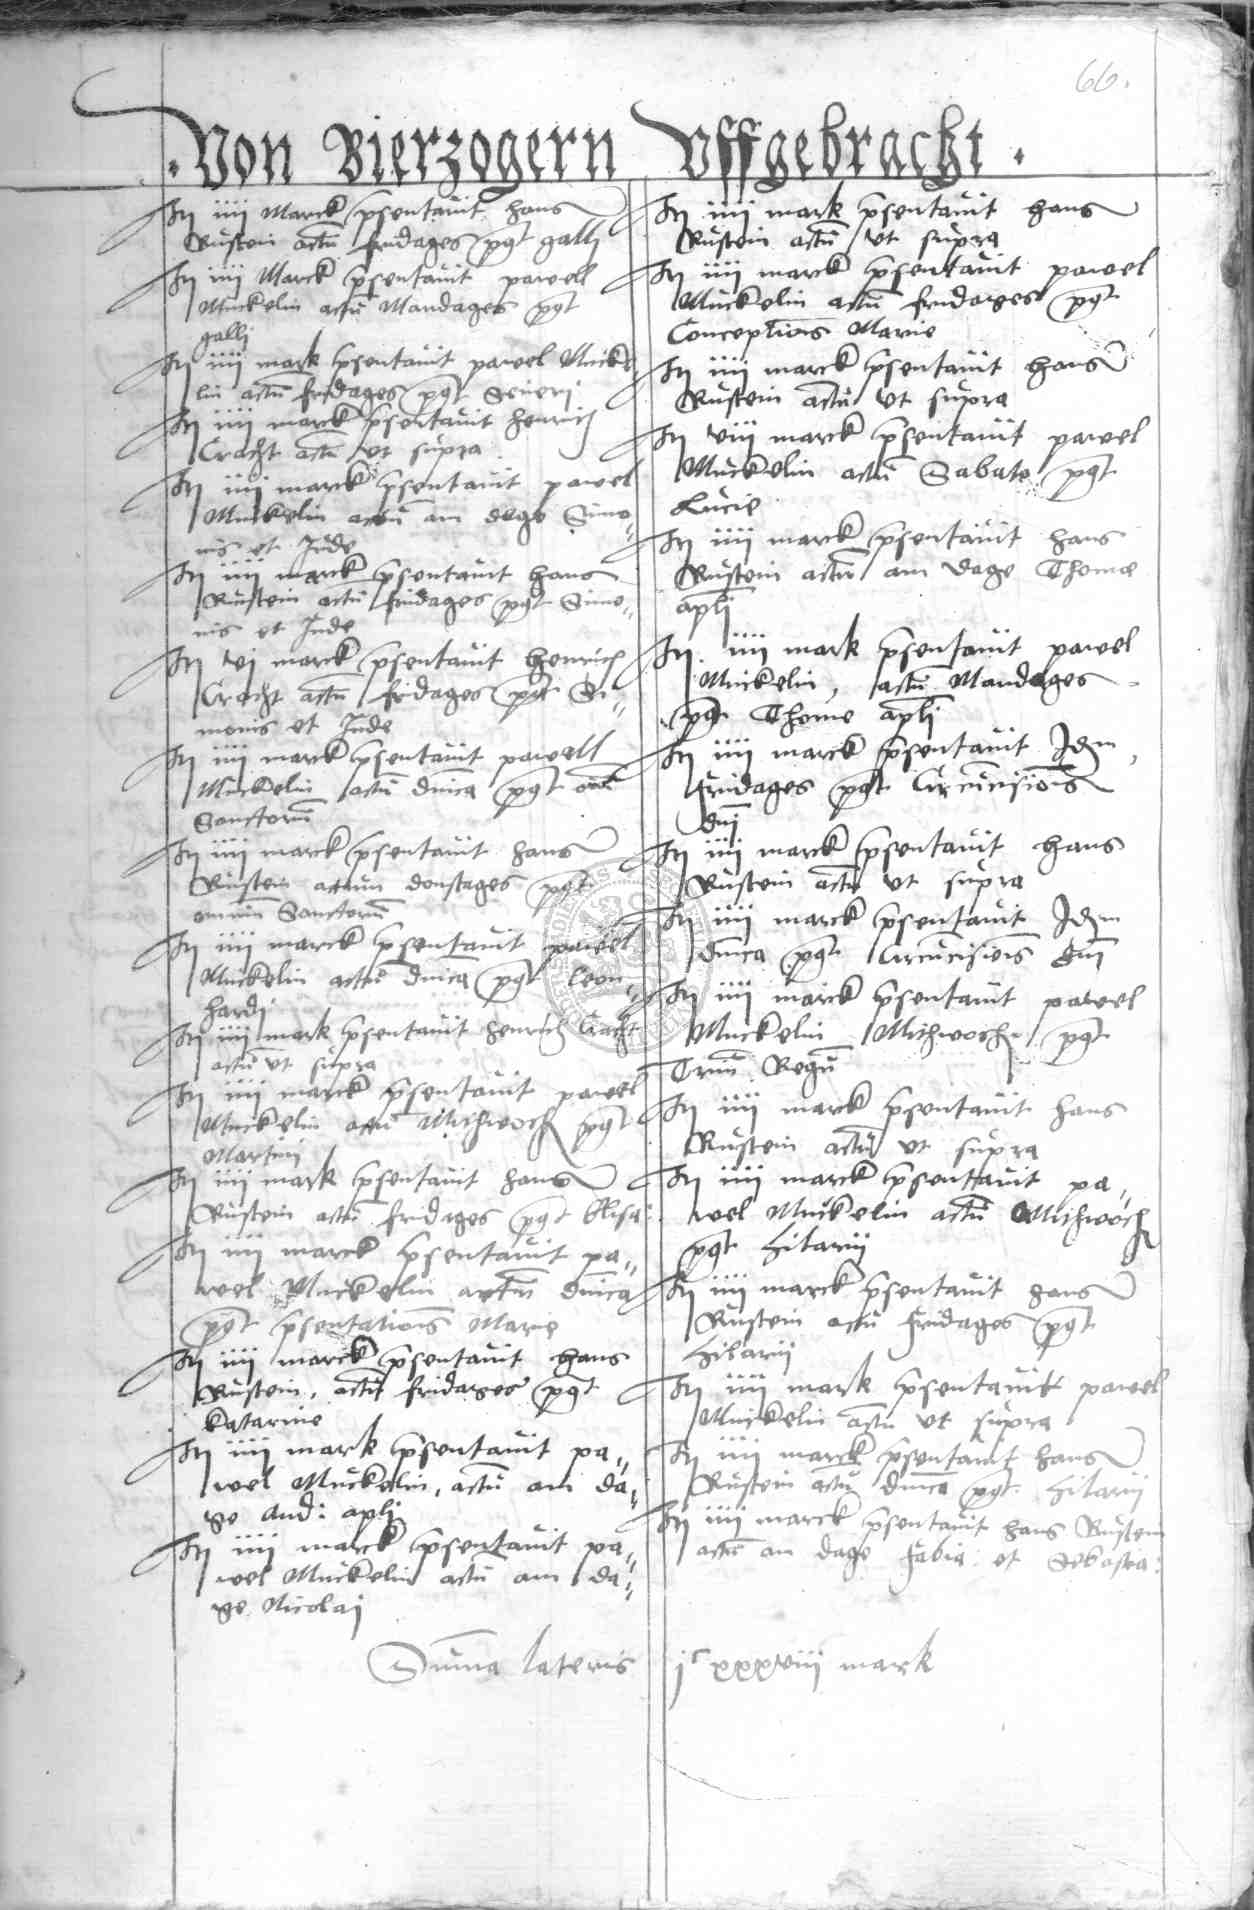 66.
Von Bierzogern Uffgebracht
It iiii Marck p̄sentavit hans
Rustein actū fridages p̄q̄t galli
It iiii Marck p̄sentavit pawell
Muckelin actū Mandages p̄q̄t
galli
It iiii mark p̄sentavit pawel Mucke
lin actū fridages p̄q̄t Severi
It iiii marck p̄sentavit henrich
Cracht actū ut supra
It iiii marck p̄sentavit pawel
Muckelin actū am dage Simo„
nis et Jude
It iiii marck p̄sentavit hans
Rustein actū fridages p̄q̄t Simo„
nis et Jude
It vi marck p̄sentavit henrich
Cracht actū fridages p̄q̄t Si„
monis et Jude
It iiii marck p̄sentavit pawell
Muckelin actū dn̄ica p̄q̄t om̄
Sanctorū
It iiii marck p̄sentavit hans
Rustein actum donstages p̄q̄t
omniū Sanctorū
It iiii marck p̄sentavit pawel
Muckelin actū dn̄ica p̄q̄t leon„
hardi
It iiii mark p̄sentavit henrich Cracht
actū ut supra
It iiii marck p̄sentavit pawel
Muckelin actū Mithwoch p̄q̄t
Martini
It iiii mark p̄sentavit hans
Rustein actū fridages p̄q̄t Elisa:
It iiii marck p̄sentavit pa„
wel Muckelin actū dn̄ica
p̄q̄t p̄sentationis Marie
It iiii marck p̄sentavit hans
Rustein, actū fridages p̄q̄t
Katarine
It iiii mark p̄sentavit pa„
wel Muckelin, actū am da„
ge And: apli
It iiii marck p̄sentavit pa„
wel Muckelin actū am da„
ge Nicolai
It iiii mark p̄sentavit hans
Rustein actū ut supra
It iiii marck p̄sentavit pawel
Muckelin actū fridages p̄q̄t
Conceptiōis Marie
It iiii marck p̄sentavit hans
Rustein actū ut supra
It viii marck p̄sentavit pawel
Muckelin actū Sabato p̄q̄t
Lucie
It iiii marck p̄sentavit hans
Rustein actū am dage Thome
apli
It iiii mark p̄sentavit pawel
Muckelin, actū Mandages
p̄q̄t Thome apli
It iiii marck p̄sentavit Idem
fridages p̄q̄t Circūcisiōis
dn̄i
It iiii marck p̄sentavit hans
Rustein actū ut supra
It iiii marck p̄sentavit Idem
dn̄ica p̄q̄t Circūcisiōis dn̄i
It iiii marck p̄sentavit pawel
Muckelin Mithwoch p̄q̄t
Triū Regū
It iiii marck p̄sentavit hans
Rustein actū ut supra
It iiii marck p̄sentavit pa„
wel Muckelin actū Mithwoch
p̄q̄t hilarii
It iiii marck p̄sentavit hans
Rustein actū fridages p̄q̄t
hilarii
It iiii mark p̄sentavit pawel
Muckelin actū ut supra
It iiii marck p̄sentavit hans
Rustein actū dn̄ica p̄q̄t hilarii
It iiii marck p̄sentavit hans Rustein
actū am dage fabia: et Sebastia:
Sūma lateris jᶜ xxxviii mark